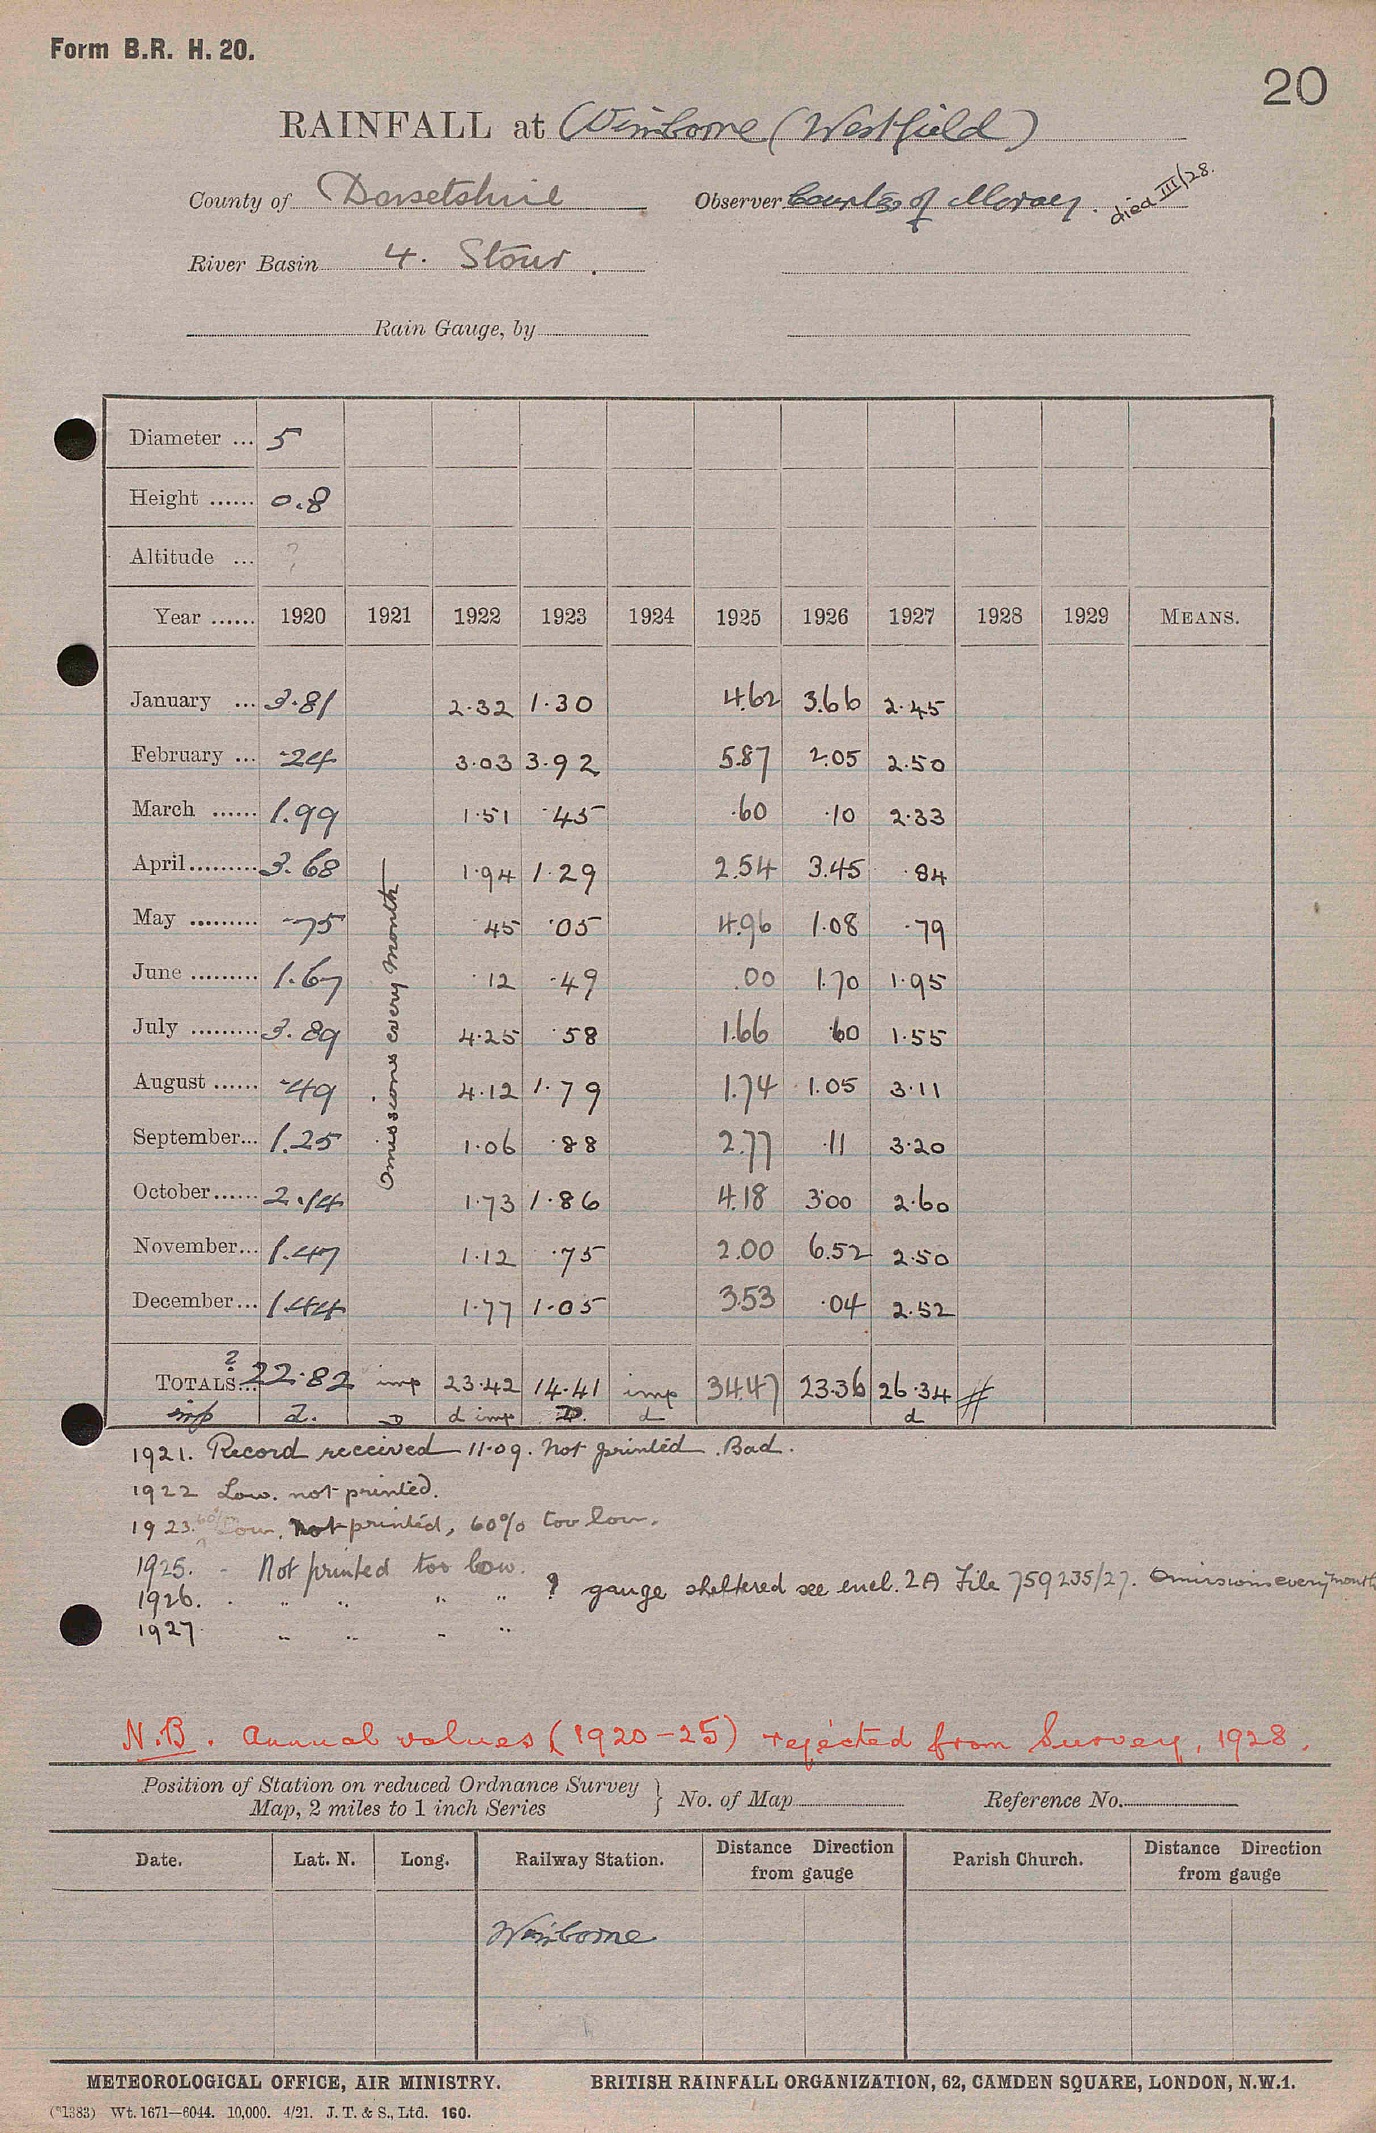 Form B.R. H. 20.
20
RAINFALL at Wimborne (Westfield)
County of Dorsetshire Observer Countess of Moray. died III/28.
River Basin 4. Stour.
Rain Gauge, by
Diameter ... 5
Height ...... 0.8
Altitude ... ?
Year ...... 1920 1921 1922 1923 1924 1925 1926 1927 1928 1929 MEANS.
January ... 3.81 2.32 1.30 4.62 3.66 2.45
February ... .24 3.03 3.92 5.87 2.05 2.50
March ...... 1.99 1.51 .45 .60 .10 2.33
April ......... 3.68 1.94 1.29 2.54 3.45 .84
May ......... .75 .45 .05 4.96 1.08 .79
June ......... 1.67 .12 .49 .00 1.70 1.95
July ......... 3.89 4.25 .58 1.66 .60 1.55
August ...... .49 4.12 1.79 1.74 1.05 3.11
September... 1.25 1.06 .88 2.77 .11 3.20
October ...... 2.14 1.73 1.86 4.18 3.00 2.60
November... 1.47 1.12 .75 2.00 6.52 2.50
December... 1.44 1.77 1.05 3.53 .04 2.52
Omissions every month
?
TOTALS... 22.82 imp 23.42 14.41 imp 34.47 23.36 26.34 #
imp d. D d imp D. d d
1921. Record received 11.09. Not printed. Bad.
1922 Low. not printed.
1923. 60% Low. Not printed, 60% too low.
1925. - Not printed too low.
1926. " " " " ? gauge sheltered see encl. 2A File 759235/27. Omissions every month
1927 " " " "
N.B. Annual values (1920-25) rejected from Survey, 1928.
Position of Station on reduced Ordnance Survey Map, 2 miles to 1 inch Series } No. of Map Reference No.
Date. Lat. N. Long. Railway Station. Distance Direction from gauge Parish Church. Distance Direction from gauge
Wimborne
METEOROLOGICAL OFFICE, AIR MINISTRY. BRITISH RAINFALL ORGANIZATION, 62, CAMDEN SQUARE, LONDON, N.W.1.
(*1383) Wt. 1671—6044. 10,000. 4/21. J. T. & S., Ltd. 160.